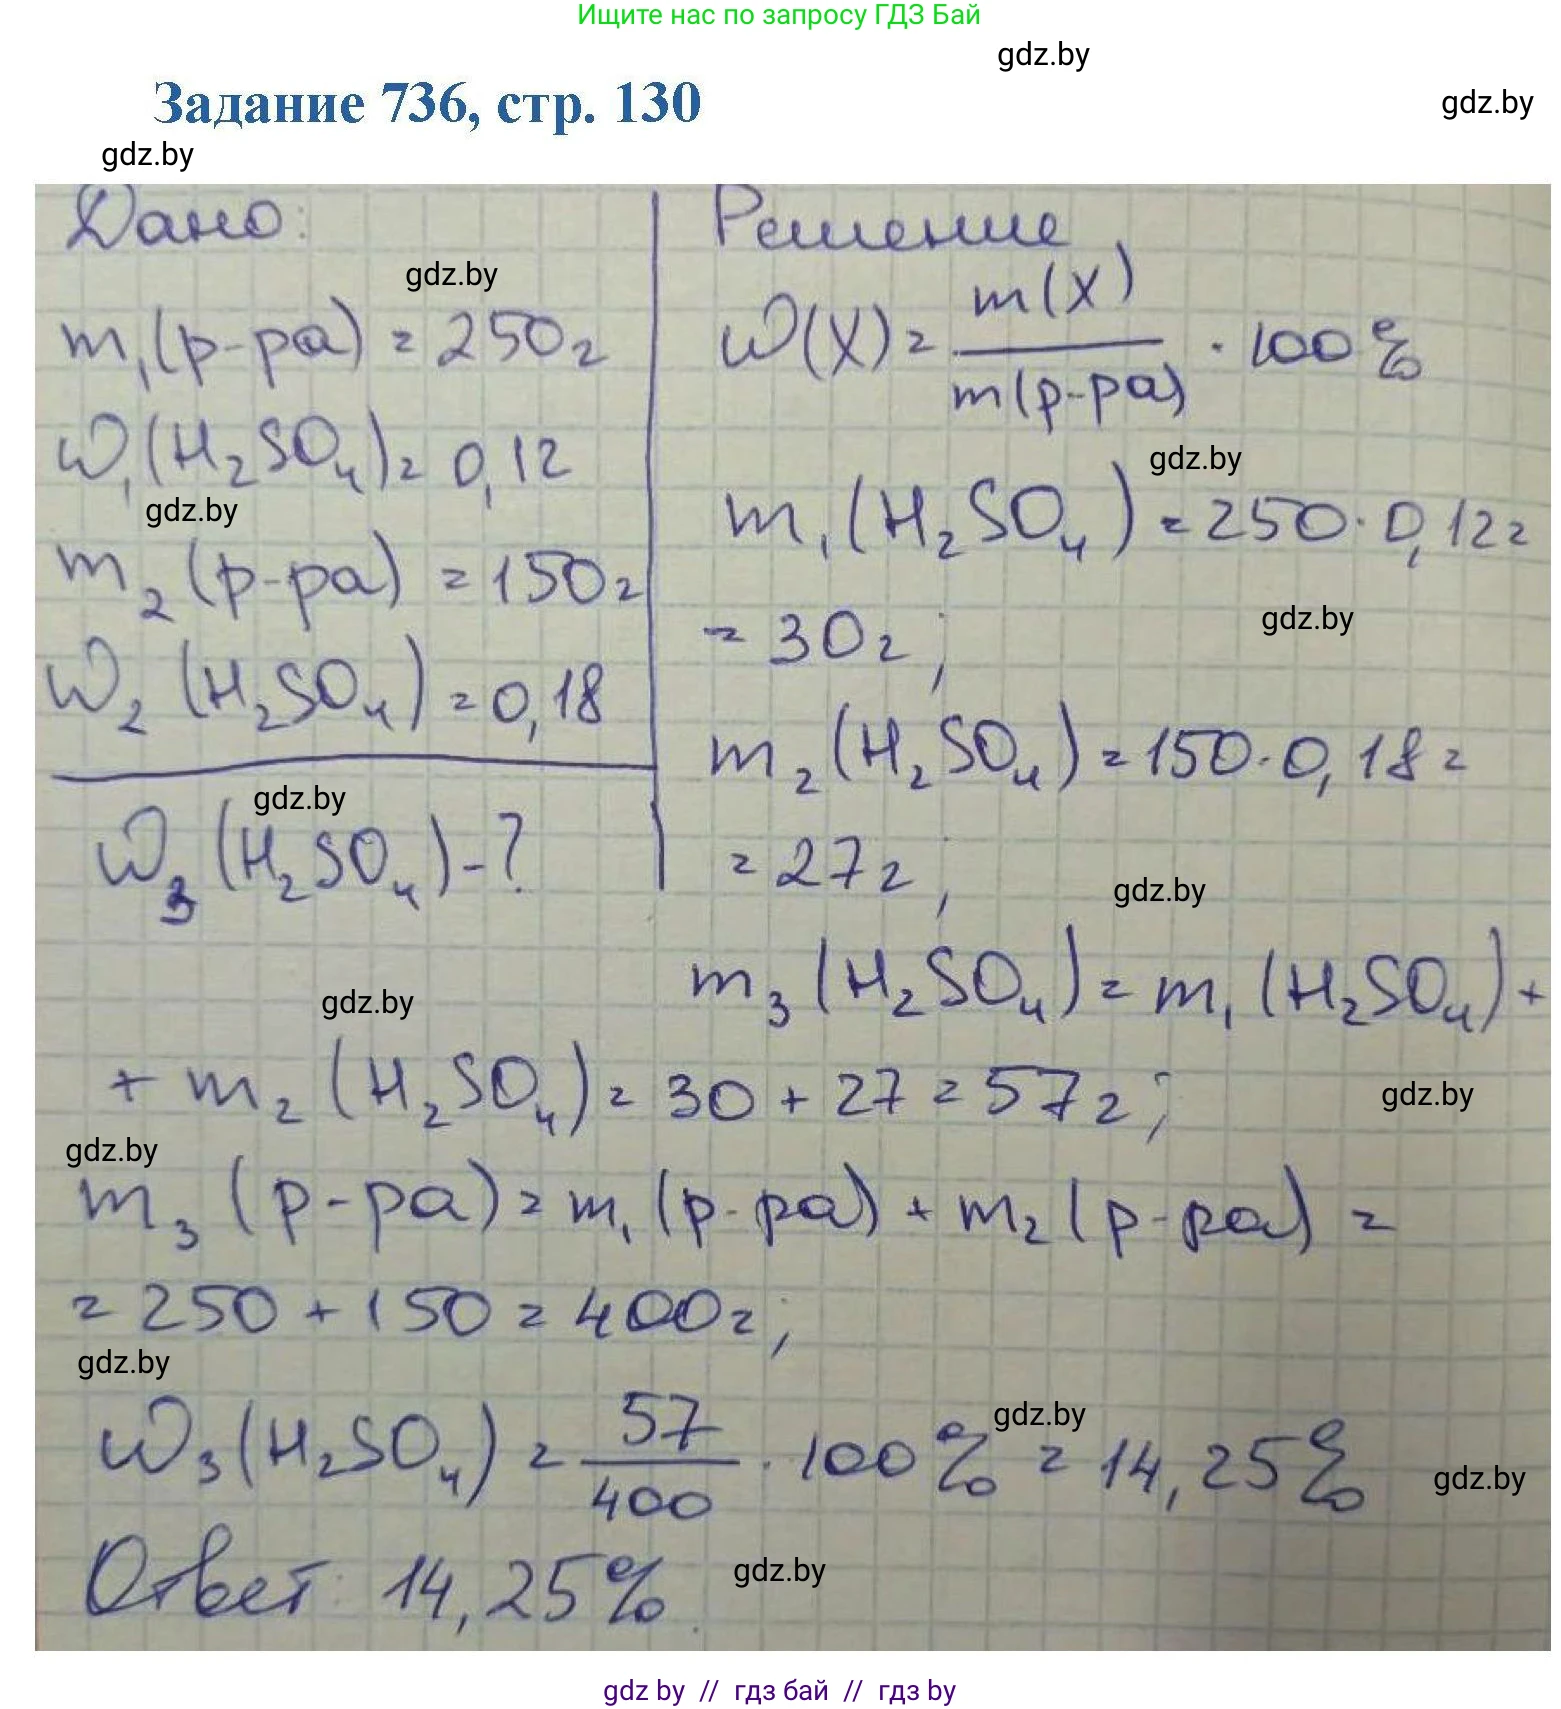 Ищите нас по запросу ГДЗ Бай
gdz.by
Задание 736, стр. 130
gdz.by
gdz.by
Дано:
gdz.by
m₁(р-ра) = 250г
w₁(H₂SO₄) = 0,12
gdz.by
m₂(р-ра) = 150г
w₂(H₂SO₄) = 0,18
gdz.by
w₃(H₂SO₄) - ?
Решение
w(X) = m(X) / m(р-ра) · 100%
gdz.by
m₁(H₂SO₄) = 250 · 0,12 =
= 30г;
gdz.by
m₂(H₂SO₄) = 150 · 0,18 =
= 27г;
gdz.by
m₃(H₂SO₄) = m₁(H₂SO₄) +
gdz.by
+ m₂(H₂SO₄) = 30 + 27 = 57г;
gdz.by
gdz.by
m₃(р-ра) = m₁(р-ра) + m₂(р-ра) =
= 250 + 150 = 400г;
gdz.by
gdz.by
w₃(H₂SO₄) = 57 / 400 · 100% = 14,25%
gdz.by
Ответ: 14,25%.
gdz.by
gdz by // гдз бай // gdz by